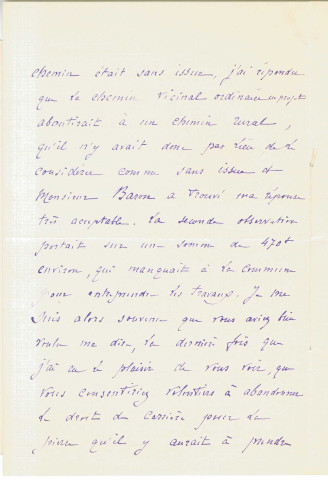 chemin était sans issue, j'ai répondu
que le chemin vicinal ordinaire en projet
aboutirait à un chemin rural,
qu'il n'y avait donc pas lieu de le
considérer comme sans issue et
Monsieur Baron a trouvé ma réponse
très acceptable. La seconde observation
portait sur une somme de 470f
environ, qui manquait à la commune
pour entreprendre les travaux. Je me
suis alors souvenu que vous aviez bien
voulu me dire, la dernière fois que
j'ai eu le plaisir de vous voir, que
vous consentiriez volontiers à abandonner
le droit de carrière pour la
pierre qu'il y aurait à prendre